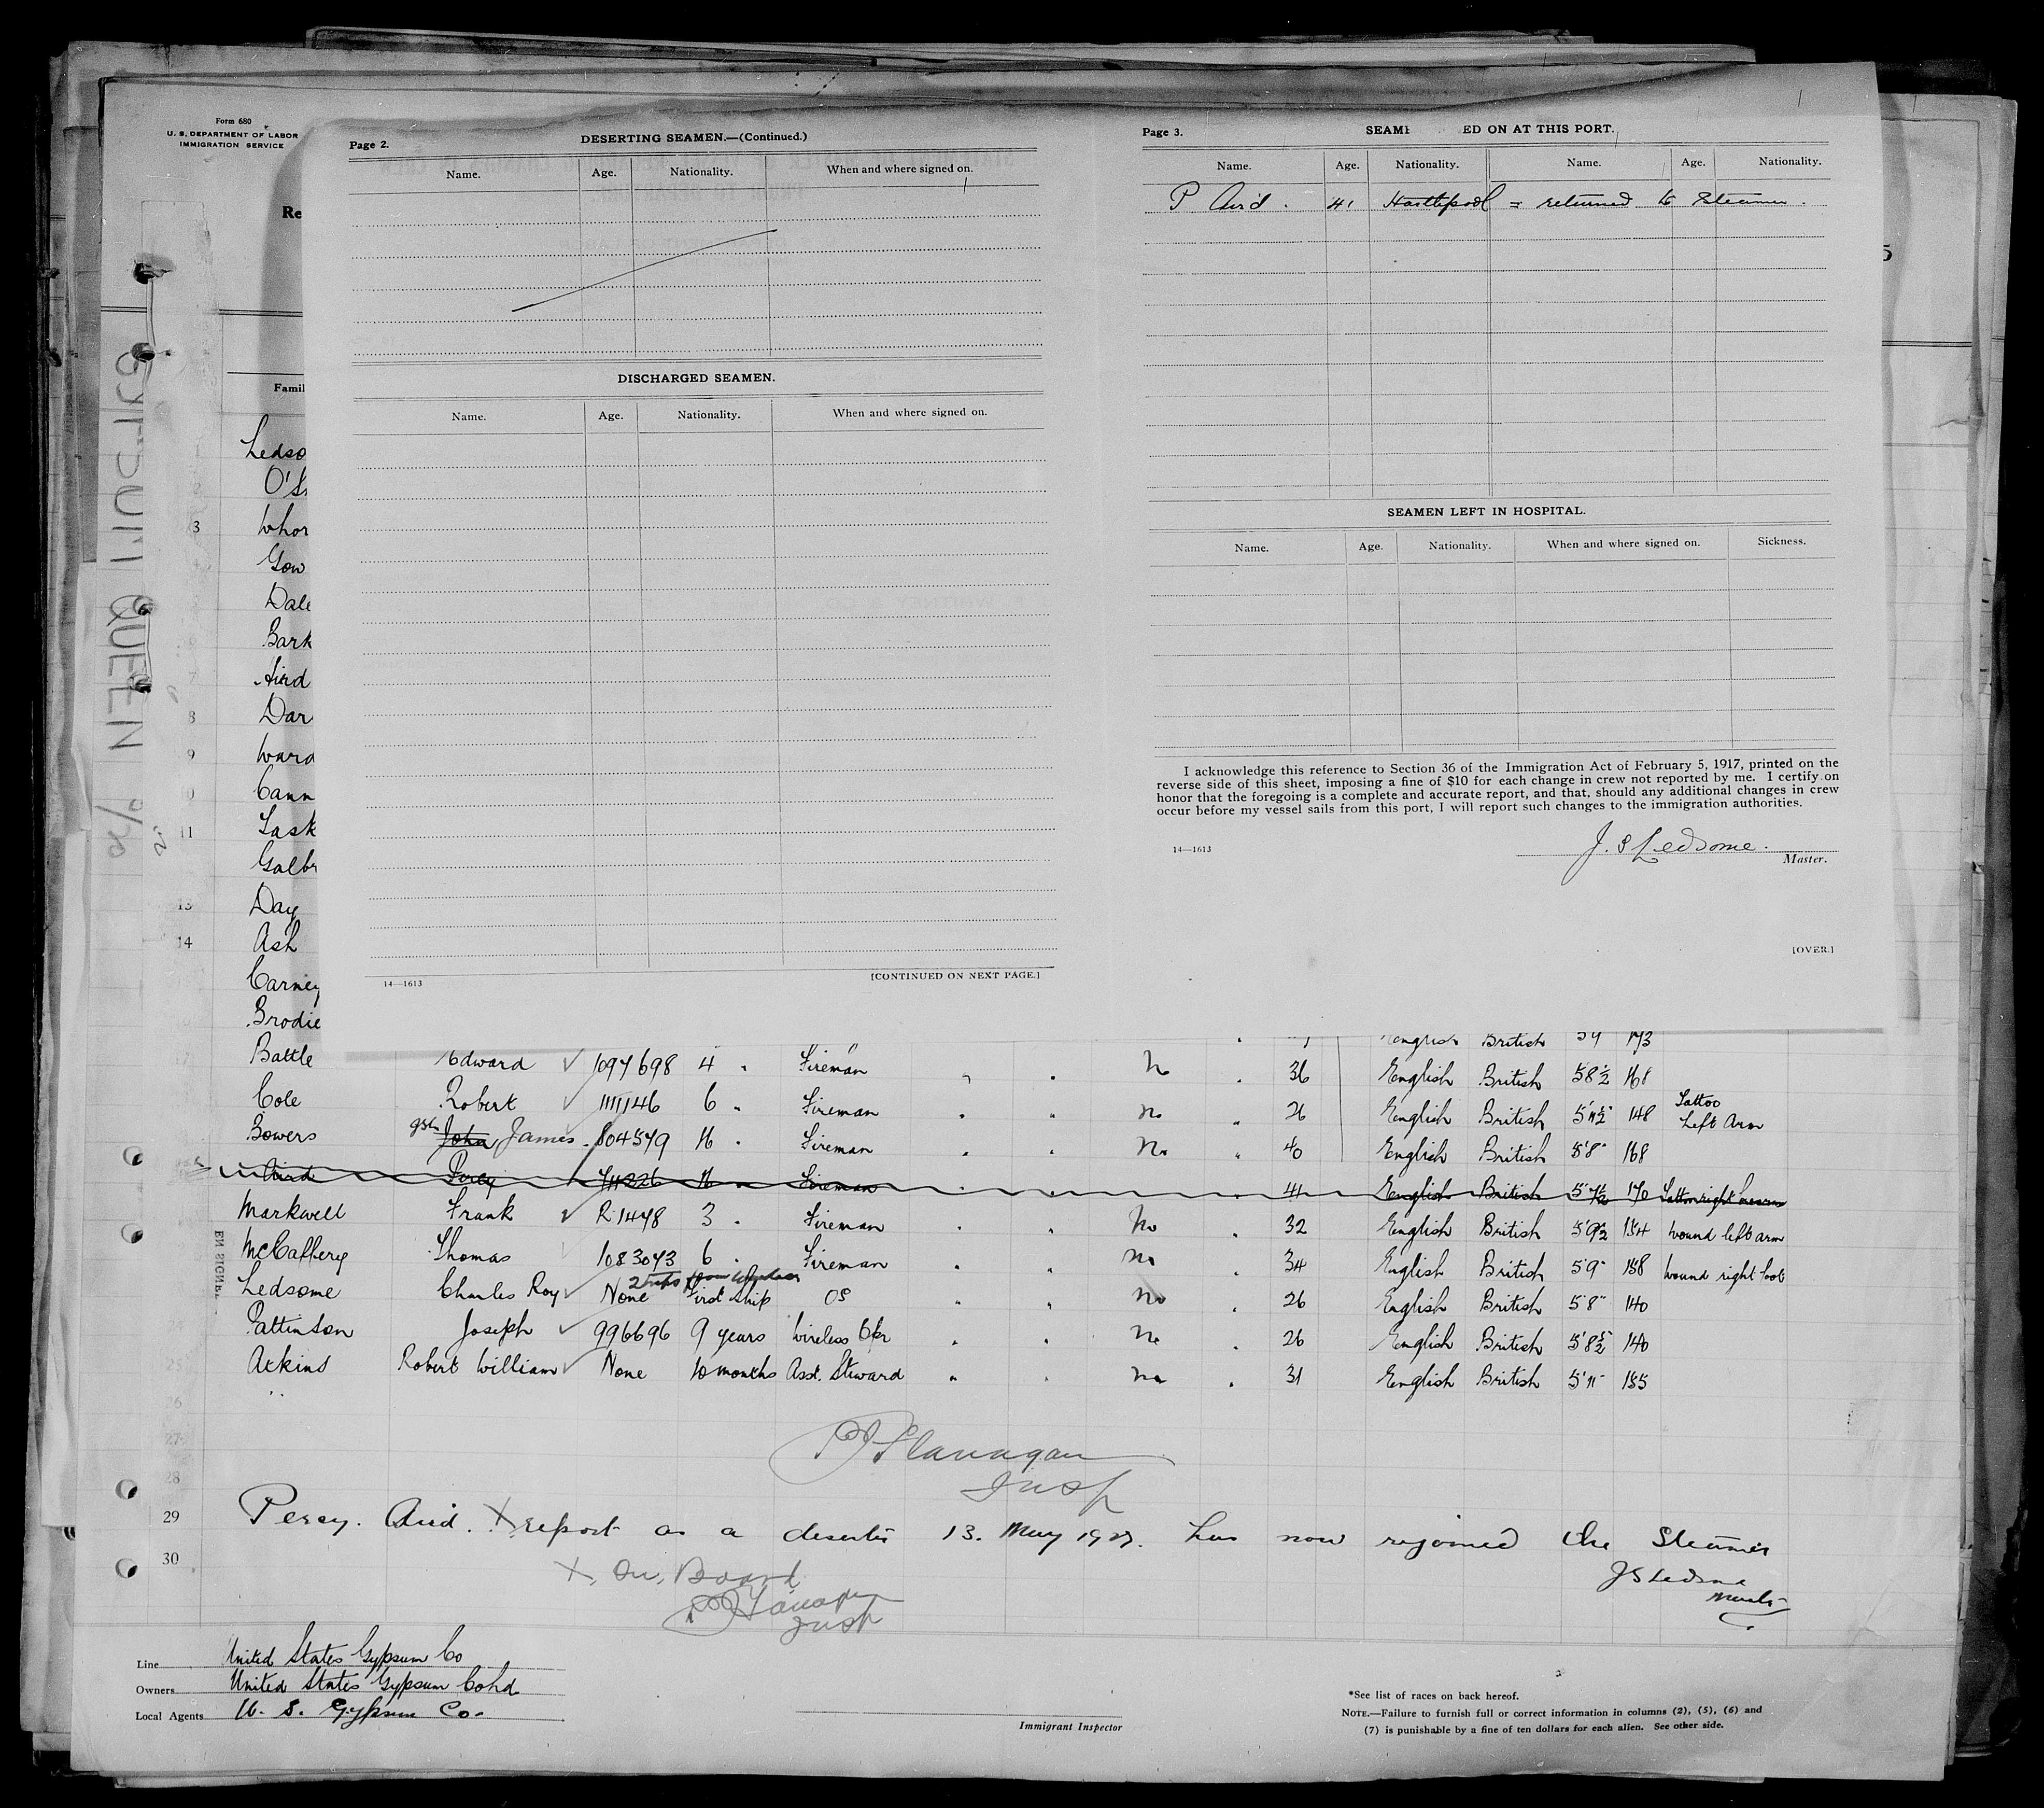 Form 680
U. S. DEPARTMENT OF LABOR
IMMIGRATION SERVICE
Re
GYPSUM QUEEN
Famil
Ledso
O'S
3 Whor
Gow
Dale
Bark
Aird
8 Dar
9 Ward
0 Cann
11 Lask
Galbr
13 Day
14 Ash
Carney
Brodie
5
Page 2.
DESERTING SEAMEN.—(Continued.)
Name. Age. Nationality. When and where signed on.
DISCHARGED SEAMEN.
Name. Age. Nationality. When and where signed on.
14—1613
[CONTINUED ON NEXT PAGE.]
Page 3.
SEAM ED ON AT THIS PORT.
Name. Age. Nationality. Name. Age. Nationality.
P Aird. 41 Hartlepool = returned to Steamer.
SEAMEN LEFT IN HOSPITAL.
Name. Age. Nationality. When and where signed on. Sickness.
I acknowledge this reference to Section 36 of the Immigration Act of February 5, 1917, printed on the
reverse side of this sheet, imposing a fine of $10 for each change in crew not reported by me. I certify on
honor that the foregoing is a complete and accurate report, and that, should any additional changes in crew
occur before my vessel sails from this port, I will report such changes to the immigration authorities.
J. S Ledsome.
14—1613
Master.
[OVER.]
English British 173
17 Battle Edward 1097698 4 " Fireman No 36 English British 5'8½ 168
Cole Robert 1111146 6 " Fireman " " no 26 English British 148 Tattoo Left Arm
Bowers John James 804579 16 " Fireman " " No " 40 English British 5'8" 168
Aird Percy 711226 16 " Fireman 41 English British 170
Markwell Frank R.1478 3 " Fireman " " No 32 English British 5'9½ 154 wound left arm
McCaffery Thomas 1083043 6 " Fireman " " no " 34 English British 5'9" 158 wound right foot
Ledsome Charles Roy None First Ship OS " " no " 26 English British 5'8" 140
Pattinson Joseph 996696 9 years Wireless Opr " " no " 26 English British 140
Atkins Robert William None 10 months Asst. Steward " " no " 31 English British 5'11" 155
26
27
28
P J Flanagan
Insp
29 Percy. Aird. X report as a deserter 13. May 1927. has now rejoined the Steamer
30
X, On, Board
J S Ledsome
Master
P J Flanagan
Insp
Line United States Gypsum Co
Owners United States Gypsum Co Ltd
Local Agents U. S. Gypsum Co.
Immigrant Inspector
*See list of races on back hereof.
NOTE.—Failure to furnish full or correct information in columns (2), (5), (6) and
(7) is punishable by a fine of ten dollars for each alien. See other side.